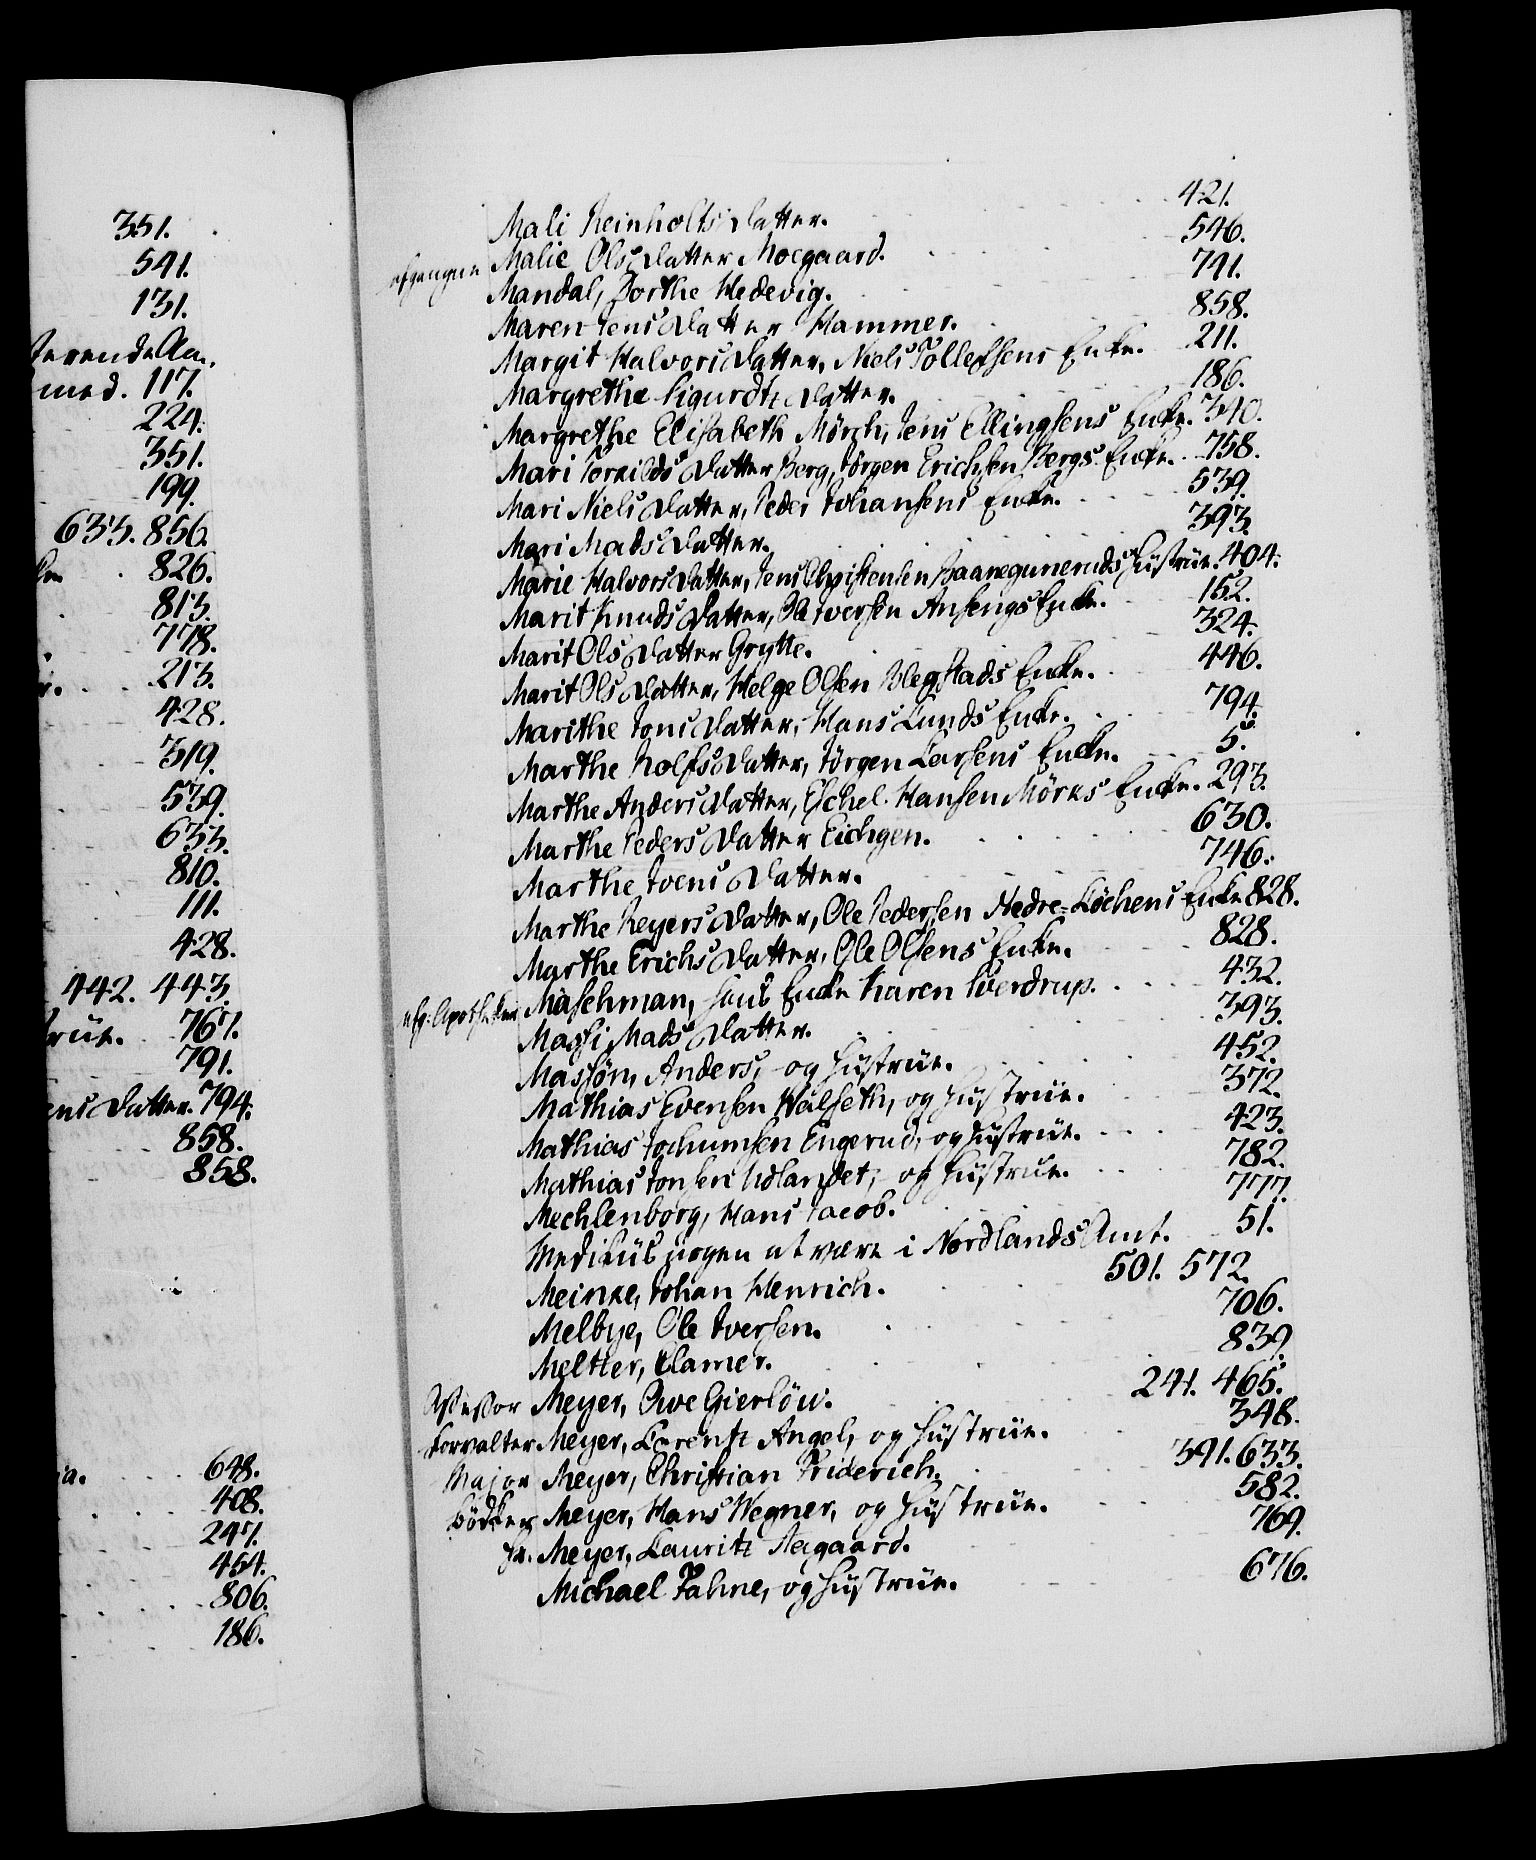 351.
541.
131.
terende Aa.
med. 117.
224.
351.
199.
633. 856.
826.
813.
778.
213.
428.
319.
539.
633.
810.
111.
428.
442. 443.
trüe. 767.
791.
ens Datter. 794.
858.
858.
648.
408.
247.
454.
806.
186.
Mali Reinholts Datter. 421.
afgangne Malie Ols Datter Moegaard. 546.
Mandal, Dorthe Hedevig. 791.
Maren Jens Datter Hammer. 858.
Margit Halvors Datter, Niels Tollefsens Enke. 211.
Margrethe Sigurdtz Datter. 186.
Margrethe Elisabeth Mörch, Jens Ellingsens Enke. 340.
Mari Torkilds Datter Berg, Jörgen Erichsen Bergs Enke. 758.
Mari Niels Datter, Peder Johansens Enke. 539.
Mari Mads Datter. 393.
Marie Halvors Datter, Jens Christensen Baareguneruds Hustrüe. 404.
Marit Knuds Datter, Ole Iversen Ansengs Enke. 152.
Marit Ols Datter Grytte. 324.
Marit Ols Datter, Helge Olsen Blegstads Enke. 446.
Marithe Jons Datter, Hans Lunds Enke. 794.
Marthe Rolfs Datter, Jörgen Larsens Enke. 5.
Marthe Anders Datter, Eschel Hansen Mörks Enke. 293.
Marthe Peders Datter Eichgen. 630.
Marthe Ivens Datter. 746.
Marthe Reyers Datter, Ole Pedersen Nedre-Löchens Enke 828.
Marthe Erichs Datter, Ole Olsens Enke. 828.
afg: Apotheker Maschman, hans Enke Karen Sverdrup. 432.
Massi Mads Datter. 393.
Massön, Anders, og Hustrüe. 452.
Mathias Evensen Walseth, og Hustrüe. 372.
Mathias Jochumsen Engerud, og Hustrüe. 423.
Mathias Jonsen Udlandet, og Hustrue. 782.
Mechlenborg, Hans Jacob. 777.
Medikus nogen at være i Nordlands Amt. 51.
Meinke, Johan Henrich. 501. 572.
Melbye, Ole Iversen. 706.
Meltzer, Clamer. 839.
Assessor Meyer, Owe Gierlöw. 241. 465.
Forvalter Meyer, Lorentz Angel, og Hustrüe. 348.
Major Meyer, Christian Friderich. 391. 633.
Bödker Meyer, Hans Wegner, og Hustrüe. 582.
Hr. Meyer, Lauritz Aagaard. 769.
Michael Fahne, og Hustrüe. 676.